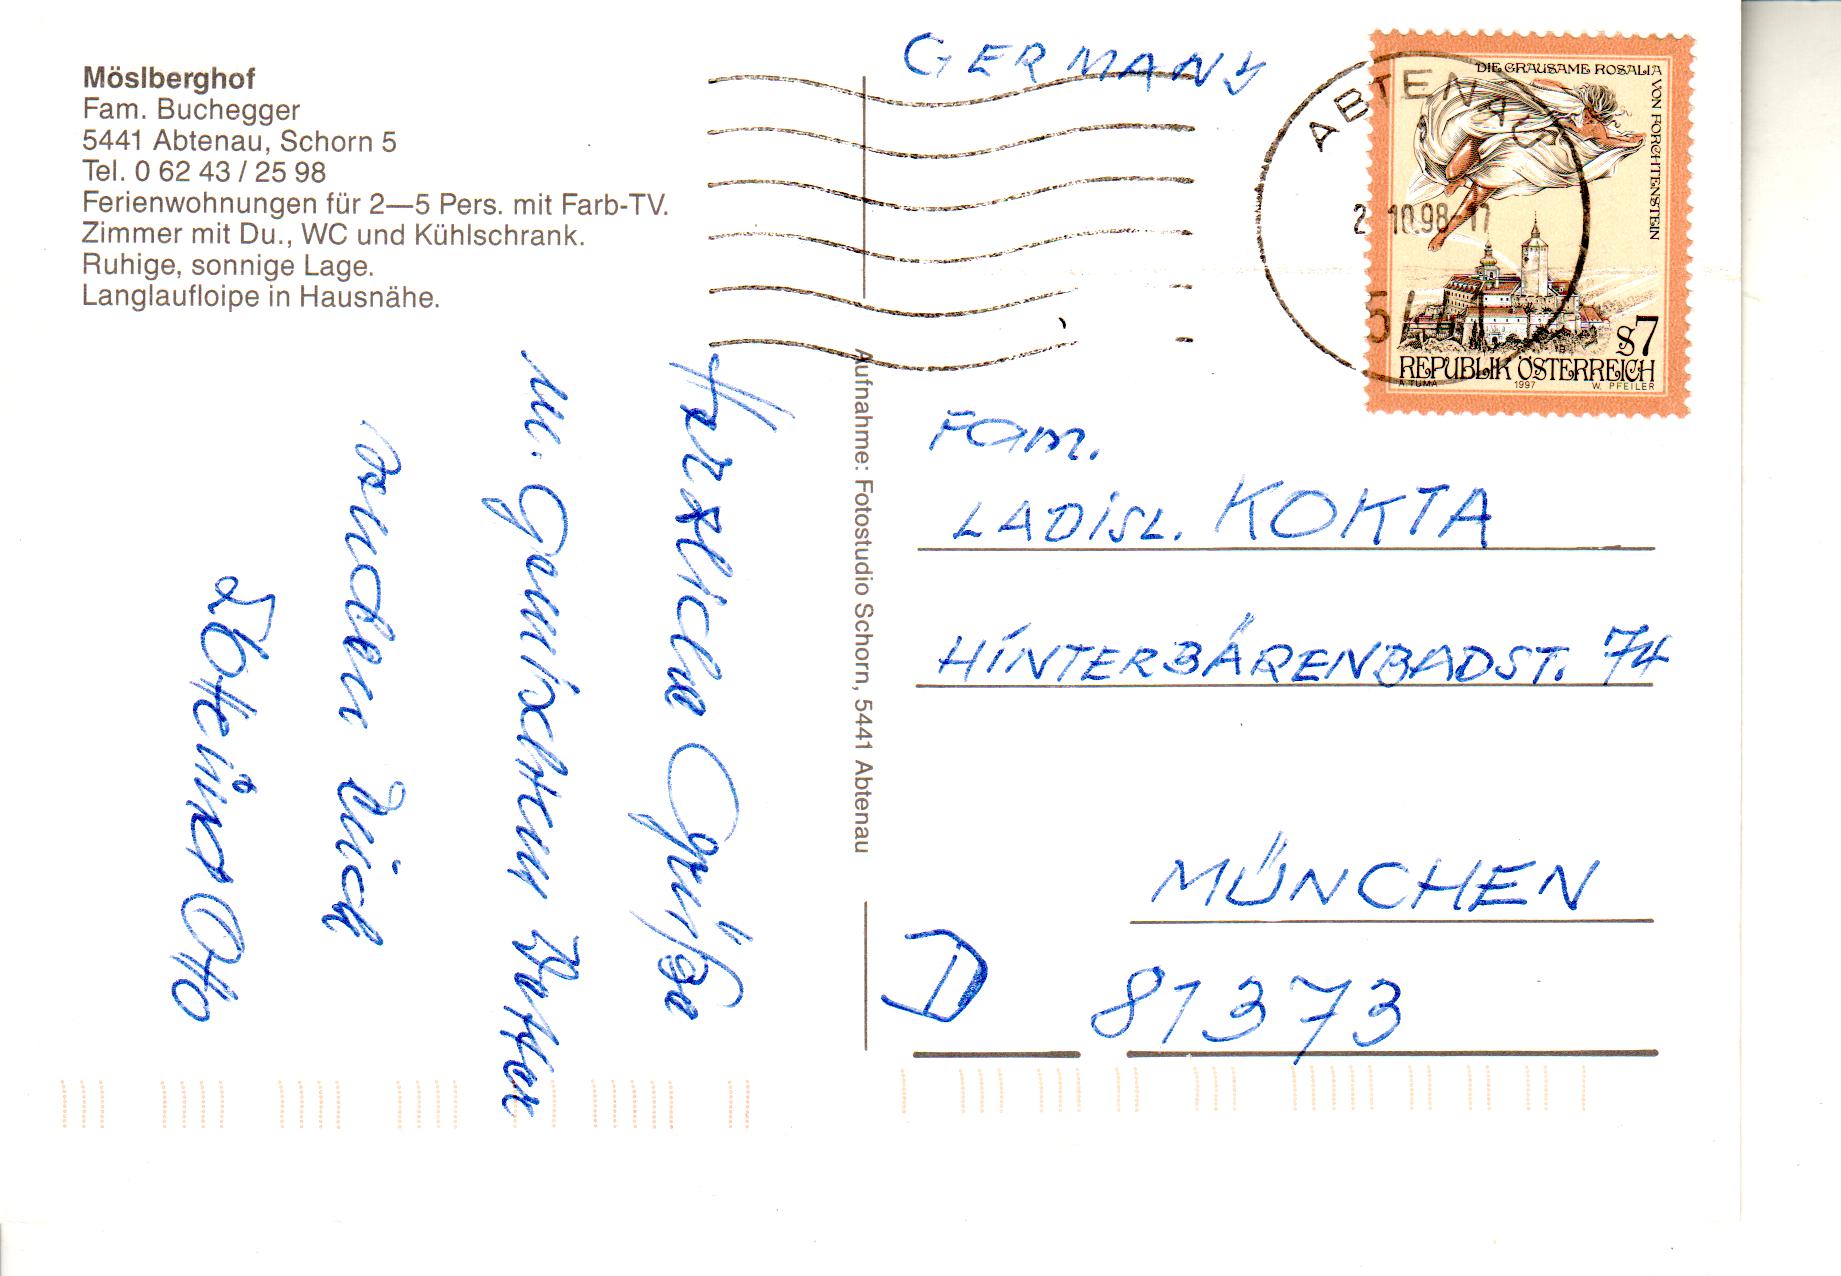 Möslberghof
Fam. Buchegger
5441 Abtenau, Schorn 5
Tel. 0 62 43 / 25 98
Ferienwohnungen für 2—5 Pers. mit Farb-TV.
Zimmer mit Du., WC und Kühlschrank.
Ruhige, sonnige Lage.
Langlaufloipe in Hausnähe.
Herzliche Grüße
m. Gemischtem Wetter
senden Dich
Otto
Aufnahme: Fotostudio Schorn, 5441 Abtenau
GERMANY
ABTENAU
2.10.98-17
54
DIE GRAUSAME ROSALIA
VON FORCHTENSTEIN
S7
REPUBLIK ÖSTERREICH
A. TUMA 1997 W. PFEILER
Fam.
LADISL. KOKTA
HINTERBÄRENBADST. 74
MÜNCHEN
D 81373